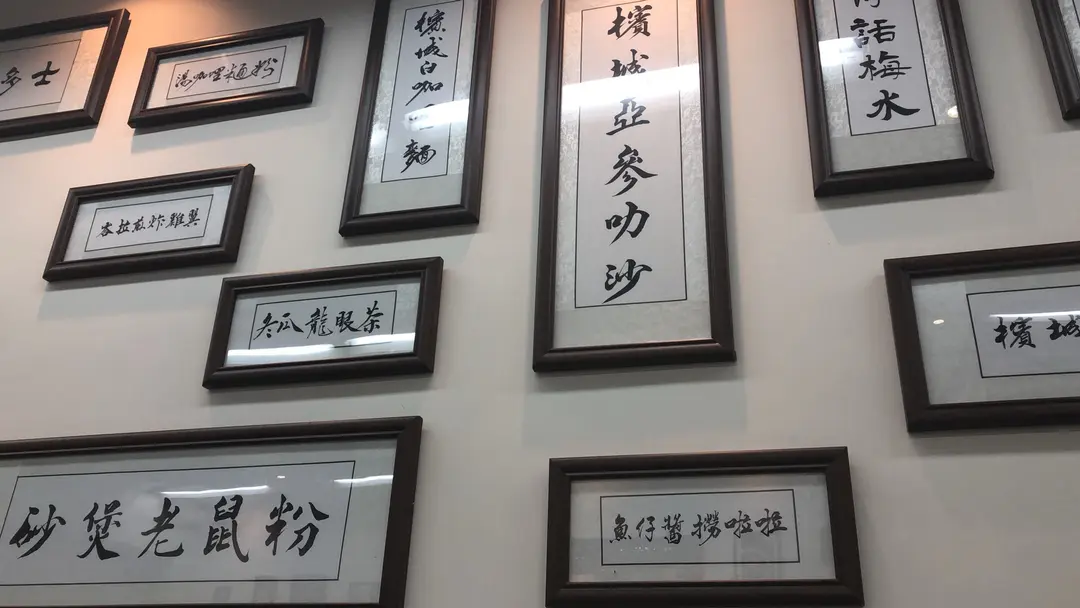 多士
湯咖哩麵粉
檳城白咖
麵
檳城亞參叻沙
話梅水
峇拉煎炸雞翼
冬瓜龍眼茶
檳城
砂煲老鼠粉
魚仔醬撈啦啦